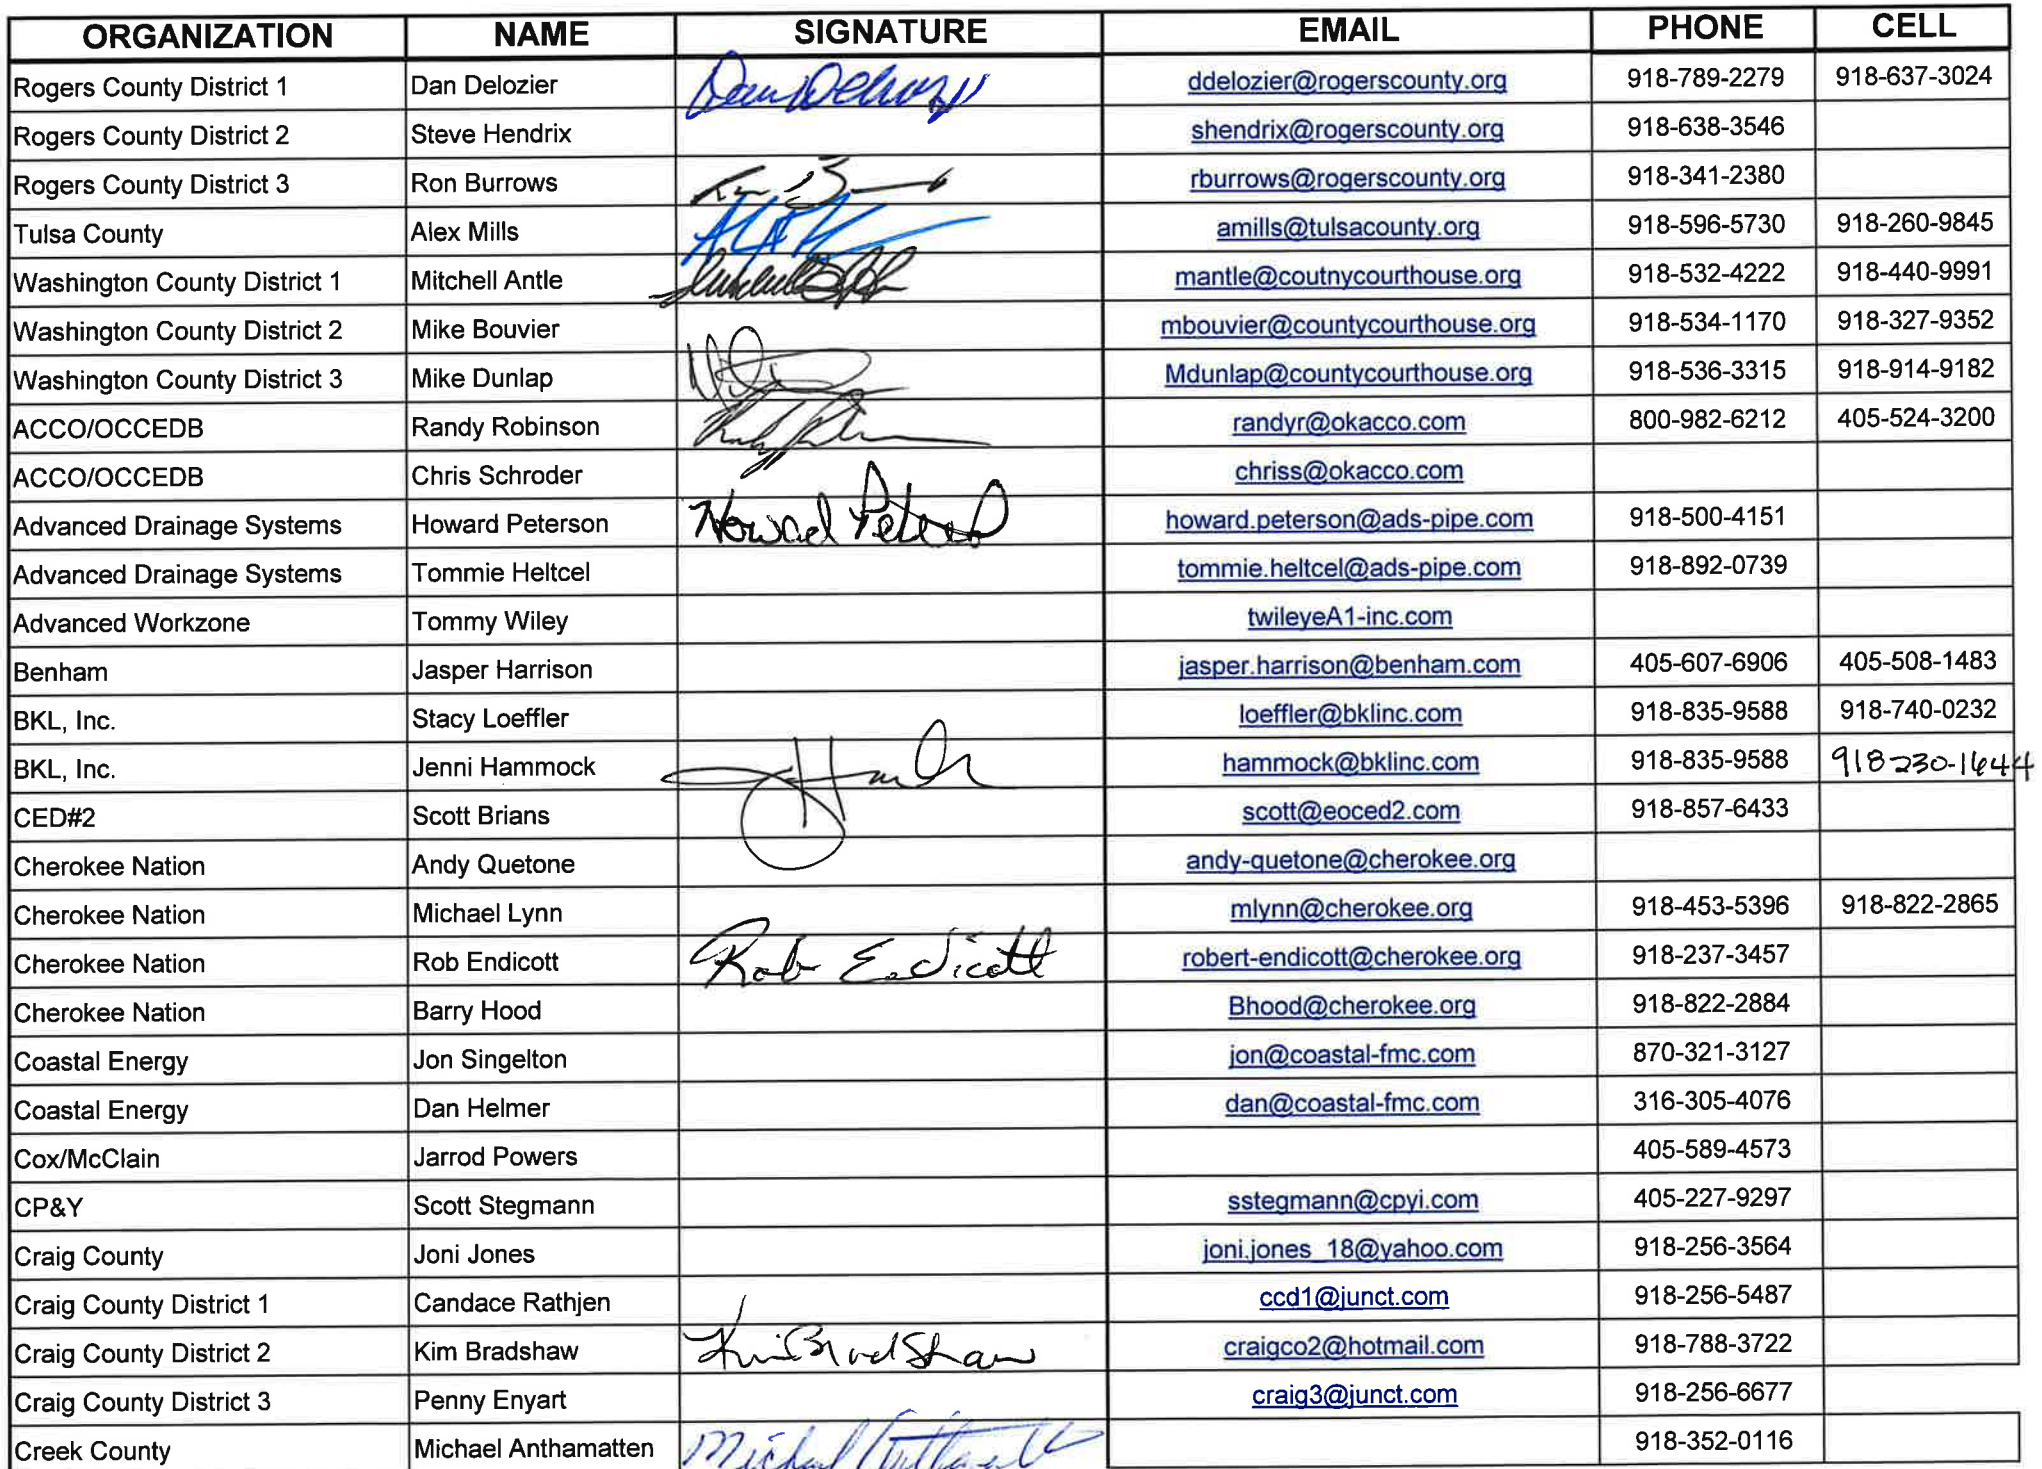 ORGANIZATION NAME SIGNATURE EMAIL PHONE CELL
Rogers County District 1 Dan Delozier Dan Delozier ddelozier@rogerscounty.org 918-789-2279 918-637-3024
Rogers County District 2 Steve Hendrix shendrix@rogerscounty.org 918-638-3546
Rogers County District 3 Ron Burrows rburrows@rogerscounty.org 918-341-2380
Tulsa County Alex Mills amills@tulsacounty.org 918-596-5730 918-260-9845
Washington County District 1 Mitchell Antle mantle@coutnycourthouse.org 918-532-4222 918-440-9991
Washington County District 2 Mike Bouvier mbouvier@countycourthouse.org 918-534-1170 918-327-9352
Washington County District 3 Mike Dunlap Mdunlap@countycourthouse.org 918-536-3315 918-914-9182
ACCO/OCCEDB Randy Robinson randyr@okacco.com 800-982-6212 405-524-3200
ACCO/OCCEDB Chris Schroder chriss@okacco.com
Advanced Drainage Systems Howard Peterson Howard Peterson howard.peterson@ads-pipe.com 918-500-4151
Advanced Drainage Systems Tommie Heltcel tommie.heltcel@ads-pipe.com 918-892-0739
Advanced Workzone Tommy Wiley twileyeA1-inc.com
Benham Jasper Harrison jasper.harrison@benham.com 405-607-6906 405-508-1483
BKL, Inc. Stacy Loeffler loeffler@bklinc.com 918-835-9588 918-740-0232
BKL, Inc. Jenni Hammock hammock@bklinc.com 918-835-9588 918-230-1644
CED#2 Scott Brians scott@eoced2.com 918-857-6433
Cherokee Nation Andy Quetone andy-quetone@cherokee.org
Cherokee Nation Michael Lynn mlynn@cherokee.org 918-453-5396 918-822-2865
Cherokee Nation Rob Endicott Rob Endicott robert-endicott@cherokee.org 918-237-3457
Cherokee Nation Barry Hood Bhood@cherokee.org 918-822-2884
Coastal Energy Jon Singelton jon@coastal-fmc.com 870-321-3127
Coastal Energy Dan Helmer dan@coastal-fmc.com 316-305-4076
Cox/McClain Jarrod Powers 405-589-4573
CP&Y Scott Stegmann sstegmann@cpyi.com 405-227-9297
Craig County Joni Jones joni.jones_18@yahoo.com 918-256-3564
Craig County District 1 Candace Rathjen ccd1@junct.com 918-256-5487
Craig County District 2 Kim Bradshaw Kim Bradshaw craigco2@hotmail.com 918-788-3722
Craig County District 3 Penny Enyart craig3@junct.com 918-256-6677
Creek County Michael Anthamatten Michael Anthamatten 918-352-0116